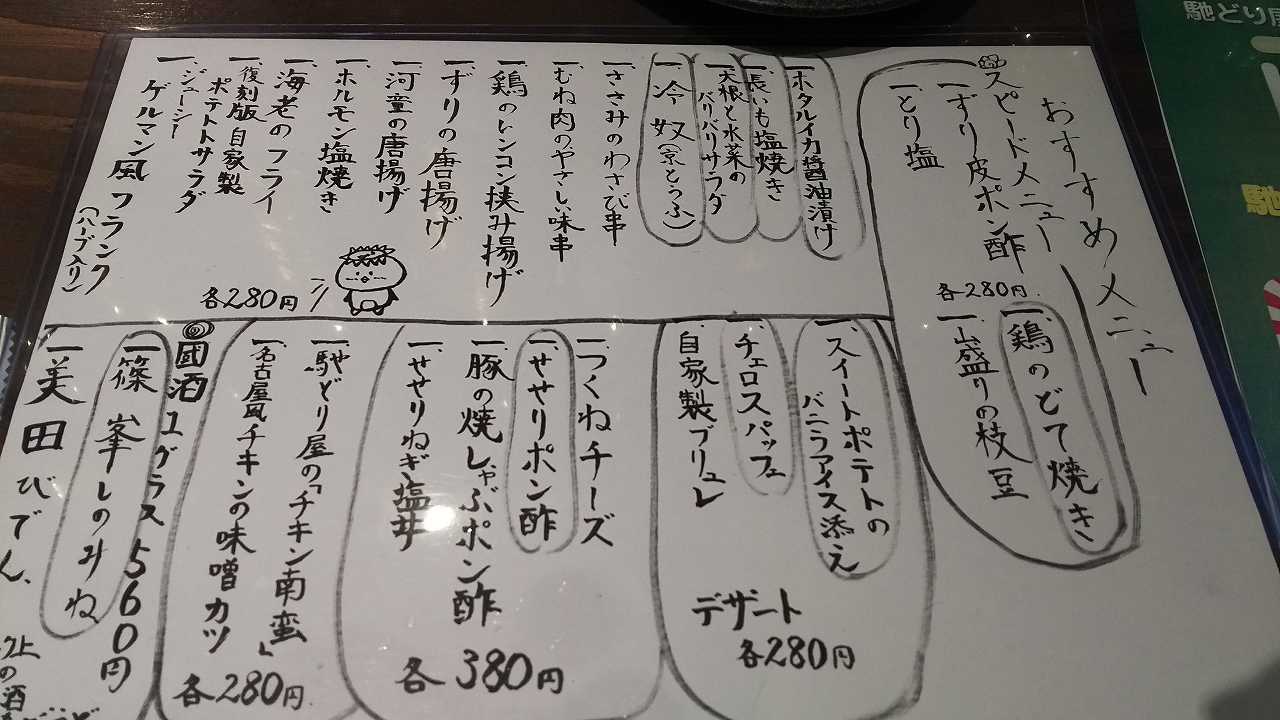 おすすめメニュー
スピードメニュー
一ずり皮ポン酢
一とり塩
各280円
一鶏のどて焼き
一山盛りの枝豆
一ホタルイカ醤油漬け
一長いも塩焼き
一大根と水菜の
バリバリサラダ
一冷奴(京とうふ)
一ささみのわさび串
一むね肉のやさしい味串
一鶏のレンコン挟み揚げ
一ずりの唐揚げ
一河童の唐揚げ
一ホルモン塩焼き
一海老のフライ
一復刻版 自家製
ポテトサラダ
一ジューシー
ゲルマン風フランク
(ハーブ入り)
各280円
一スイートポテトの
バニラアイス添え
一チェロスパッフェ
一自家製ブリュレ
デザート
各280円
一つくねチーズ
一せせりポン酢
一豚の焼しゃぶポン酢
一せせりねぎ塩丼
各380円
一馳どり屋の「チキン南蛮」
一名古屋風チキンの味噌カツ
各280円
國酒 1グラス560円
一篠峯しのみね
一美田びでん、
の酒
馳どり屋
馳